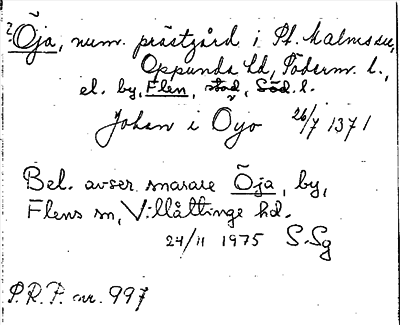 ? Öja, num. prästgård i St. Malms sn,
Oppunda hd, Söderm. l.,
el. by, Flen, stad, Söd. l.
Johan i Öyo 26/7 1371
Bel. avser snarare Öja, by,
Flens sn, Villåttinge hd.
24/11 1975 S.Sg
P.R.P. nr. 997